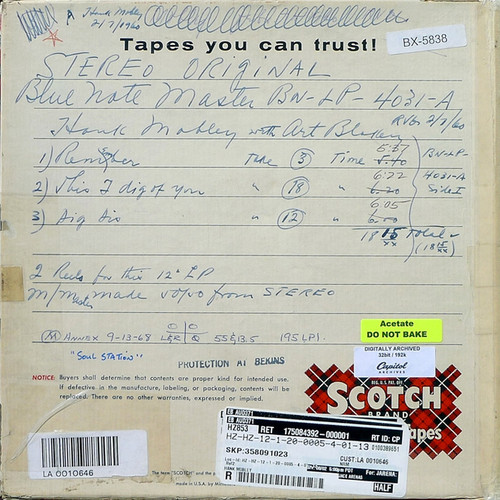 A Hank Mobley
2/7/1960
BX-5838
Tapes you can trust!
STEREO ORIGINAL
Blue Note Master BN-LP-4031-A
Hank Mobley with Art Blakey RVG 2/7/60
1) Remember Take 3 Time 5:37 5:40 BN-LP-
4031-A
2) This I dig of you " 18 " 6:22 6:20 Side 1
3) Dig Dis " 12 " 6:05 6:00
18 15 Total
xx (18 15)
xx
2 Reels for this 12" LP
m/Master made vo/vo from STEREO
M ANNEX 9-13-68 0 0 L&R Q 55 & 13.5 195 LP)
"SOUL STATION"
PROTECTION AT BEKINS
Acetate
DO NOT BAKE
DIGITALLY ARCHIVED
32bit / 192k
Capitol
ARCHIVES
NOTICE: Buyers shall determine that contents are proper kind for intended use.
If defective in the manufacture, labeling, or packaging, contents will be
replaced. There are no other warranties, expressed or implied.
REG. U.S. PAT. OFF.
SCOTCH
BRAND
Tapes
LA 0010646
HZ853 RET 175084392-000001 RT ID: CP
HZ-HZ-12-1-20-0005-4-01-13 0100389651
SKP:358091023 CUST:LA 0010646
HANK MOBLEY
R HALF
The term "SCOTCH"
Made in U.S.A. by